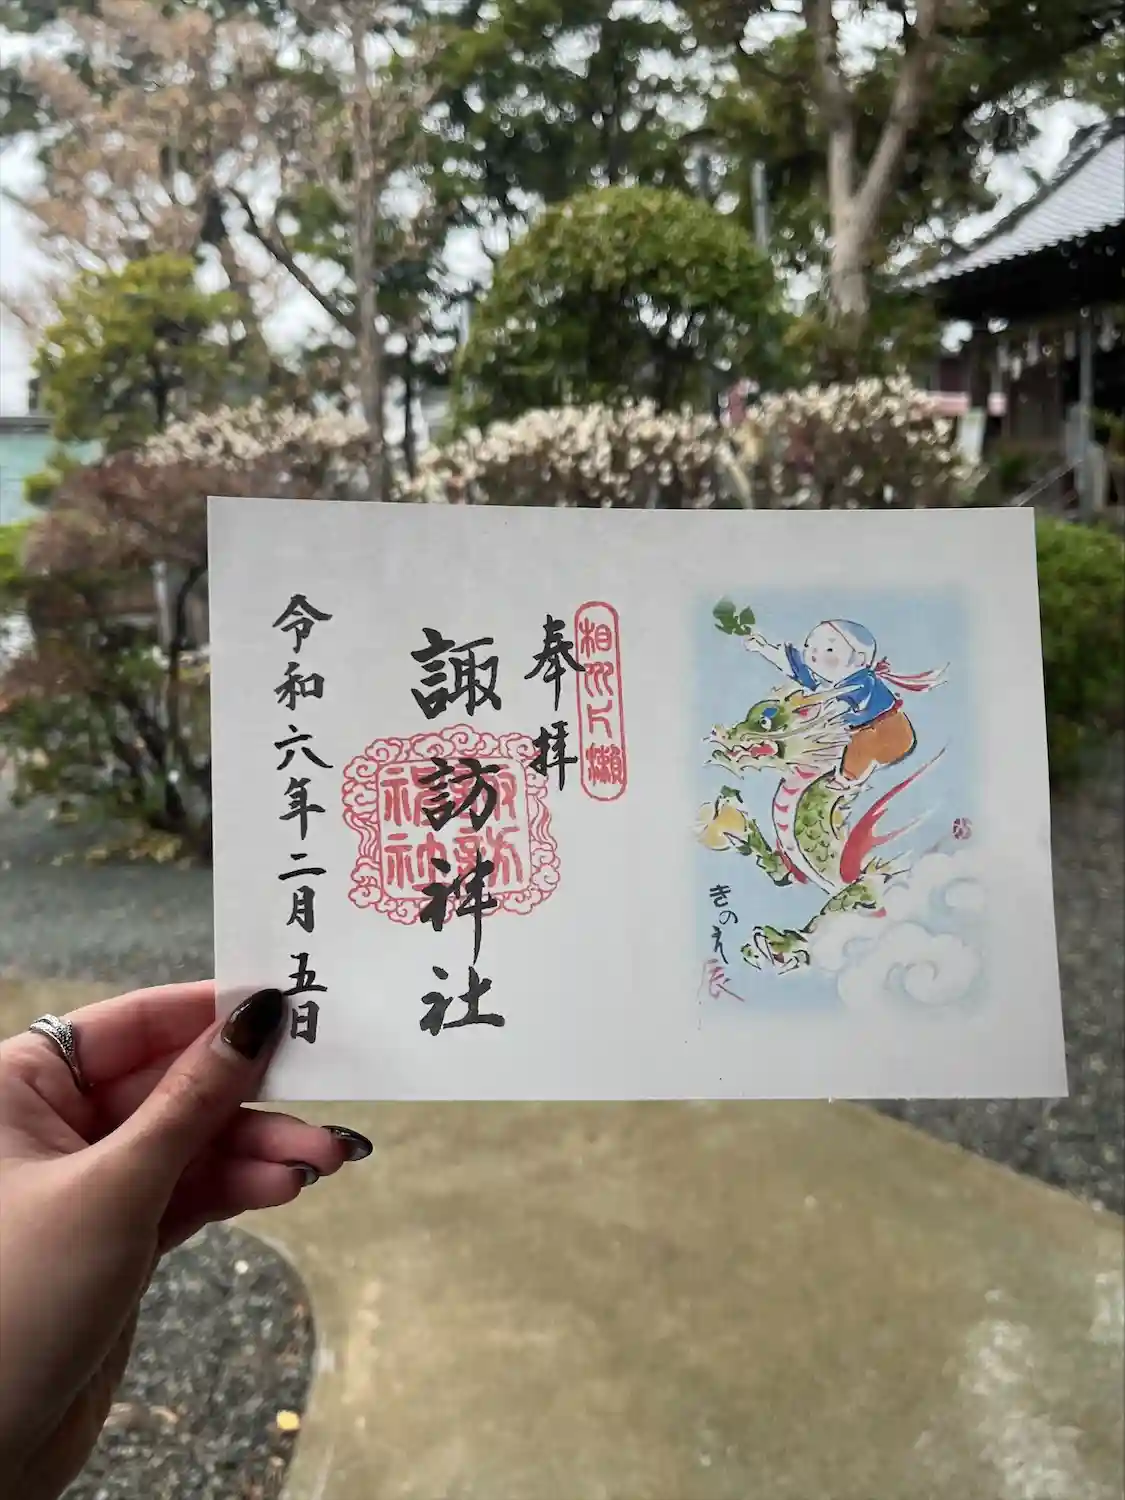 奉拝
相州片瀬
諏訪神社
諏訪神社
令和六年二月五日
きのえ
辰